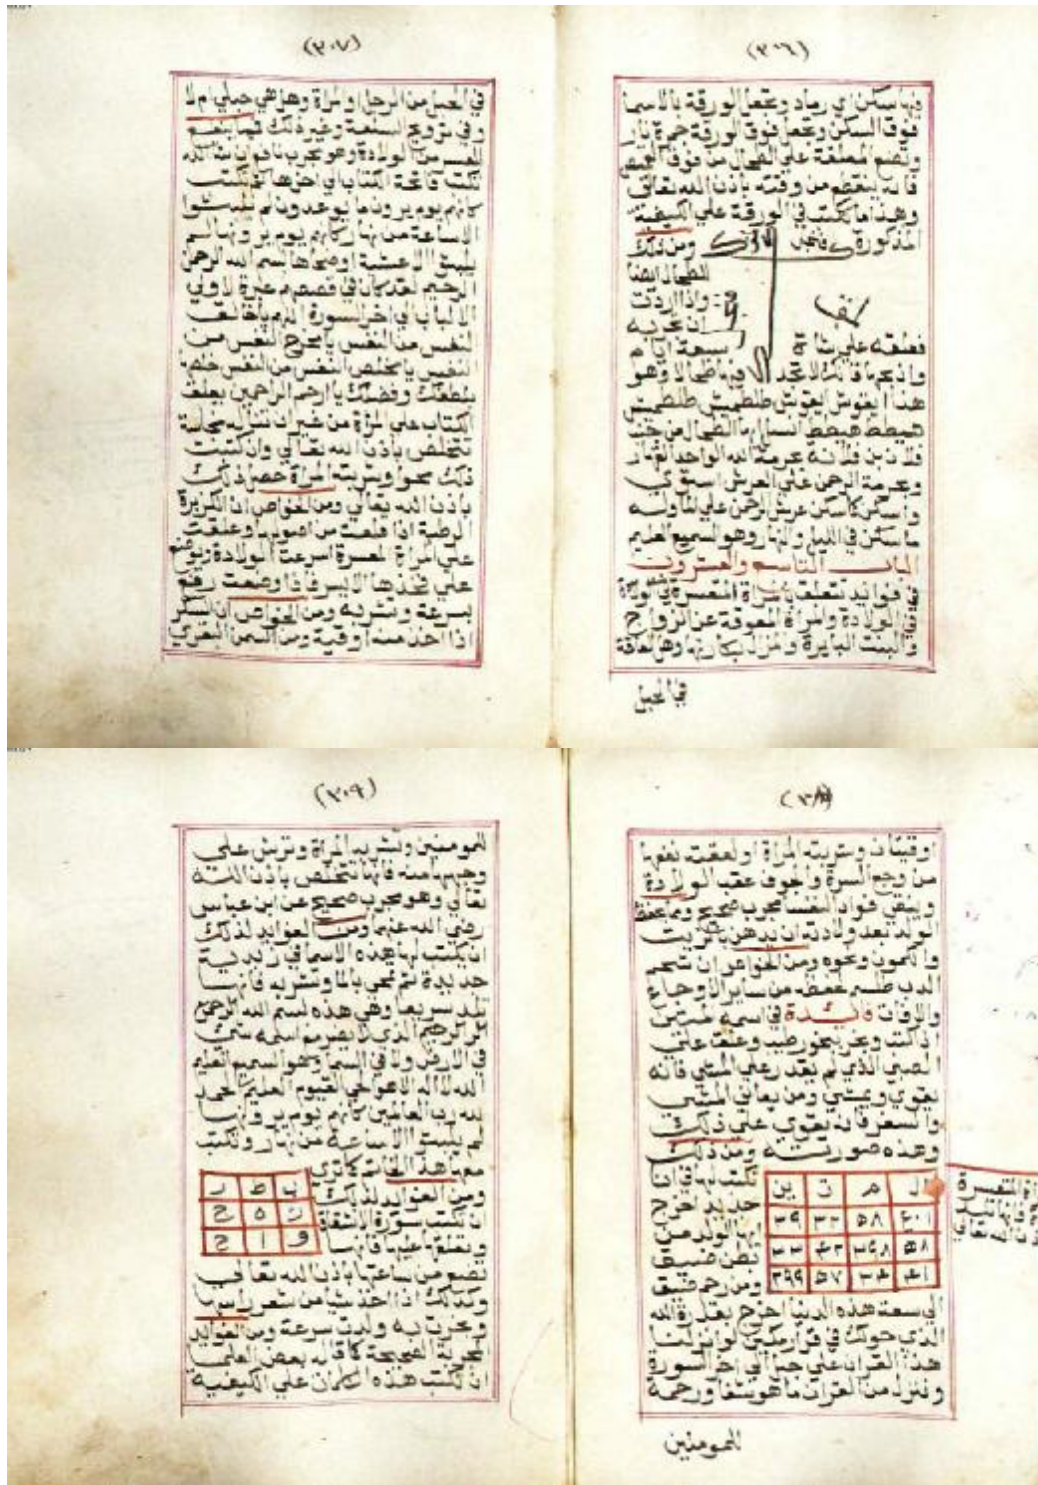 (٣٠٦)
فيها سكن اي رماد وتجعل الورقة بالاسما
فوق السكن وتجعل فوق الورقة جمرة نار
وتضع الملعقة علي الطحال من فوق القميص
فانه ينقطع من وقته باذن الله تعالي
وهذا ما تكتب في الورقة علي الكيفية
المذكورة
ومن ذلك
للطحال ايضا
واذا اردت
ان تجربه
فعلقه علي شاة
سبعة ايام
واذبحها فانك لا تجد فيها طحالا وهو
هذا
فلان بن فلانة بحرمة الله الواحد القهار
وبحرمة الرحمن علي العرش استوي
واسكن كما سكن عرش الرحمن علي الما وله
ما سكن في الليل والنهار وهو السميع العليم
الباب التاسع والعشرون
في فوايد تتعلق بالمراة المتعسرة في الولادة
والمراة المعوقة عن الزواج
والبنت البايرة ومن زل بكارتها وهي العاقة
في الحبل
(٣٠٧)
في الحبل من الرجل او المراة وهل هي حبلي ام لا
وفي ترويج السلعة وغير ذلك فمما ينفع
لعسر الولادة وهو مجرب نافع باذن الله
تكتب فاتحة الكتاب الي اخرها ثم تكتب
كانهم يوم يرون ما يوعدون لم يلبثوا
الا ساعة من نهار كانهم يوم يرونها لم
يلبثوا الا عشية او ضحاها بسم الله الرحمن
الرحيم لقد كان في قصصهم عبرة لاولي
الالباب الي اخر السورة اللهم يا خالق
النفس من النفس يا مخرج النفس من
النفس يا مخلص النفس من النفس خلصها
بلطفك وفضلك يا ارحم الراحمين يعلق
الكتاب علي المراة من غير ان تنزله بعجلة
تتخلص باذن الله تعالي وان كتبت
ذلك محوا وشربته المراة حصل ذلك
باذن الله تعالي ومن الخواص ان الكزبرة
الرطبة اذا قلعت من اصولها وعلقت
علي المراة المعسرة اسرعت الولادة ويوضع
علي فخذها الايسر فاذا وضعت رفع
بسرعة وتشربه ومن الخواص ان السكر
اذا اخذ منه اوقية ومن السمن البقري
اوقيتان وشربته المراة او لعقته نفعها
من وجع السرة والجوف عقب الولادة
ويبقي فواد النفسا مجرب صحيح ومما يحفظ
الولد بعد ولادته ان يدهن بالزيت
والكمون ونحوه ومن الخواص ان شحم
الدب طلسم يحفظه من ساير الاوجاع
والافات فائدة في اسمه متين
اذا كتب وبخر ببخور طيب وعلق علي
الصبي الذي لم يقدر علي المشي فانه
يقوي ويمشي ومن يعاني المشي
والسفر فانه يقوي علي ذلك
وهذه صورته ومن ذلك
تكتب لها في انا
جديد اخرج
ايها الولد من
بطن ضيق
ومن رحم ضيق
ال م ت ين
٤٠١ ٥٨ ٣٢ ٣٩
٥٨ ٣٩٨ ٤٢ ٣٣
٤١ ٣٤ ٥٧ ٣٩٩
الي سعة هذه الدنيا اخرج بقدرة الله
الذي جعلك في قرار مكين لو انزلنا
هذا القران علي جبل الي اخر السورة
وننزل من القران ما هو شفا ورحمة
للمومنين
(٣٠٩)
للمومنين وتشربه المراة وترش علي
وجهها منه فانها تتخلص باذن الله
تعالي وهو مجرب صحيح عن ابن عباس
رضي الله عنهما ومن الفوايد لذلك
ان يكتب لها هذه الاسما في زبدية
جديدة ثم تمحي بالما وتشربه فانها
تلد سريعا وهي هذه بسم الله الرحمن
الرحيم الذي لا يضر مع اسمه شي
في الارض ولا في السما وهو السميع العليم
الله لا اله الا هو الحي القيوم العليم الحمد
لله رب العالمين كانهم يوم يرونها
لم يلبثوا الا ساعة من نهار وتكتب
معها هذا الخاتم كما تري
ومن الفوايد لذلك
ان تكتب سورة الانشقاق
وتعلقها عليها فانها
ب ط د
ز ه ج
و ا ح
تضع من ساعتها باذن الله تعالي
وكذلك اذا اخذ شيا من شعر راسها
وبخرت به ولدت بسرعة ومن الفوايد
المجربة الصحيحة كما قاله بعض العلما
ان تكتب هذه الكلمات علي الكيفية